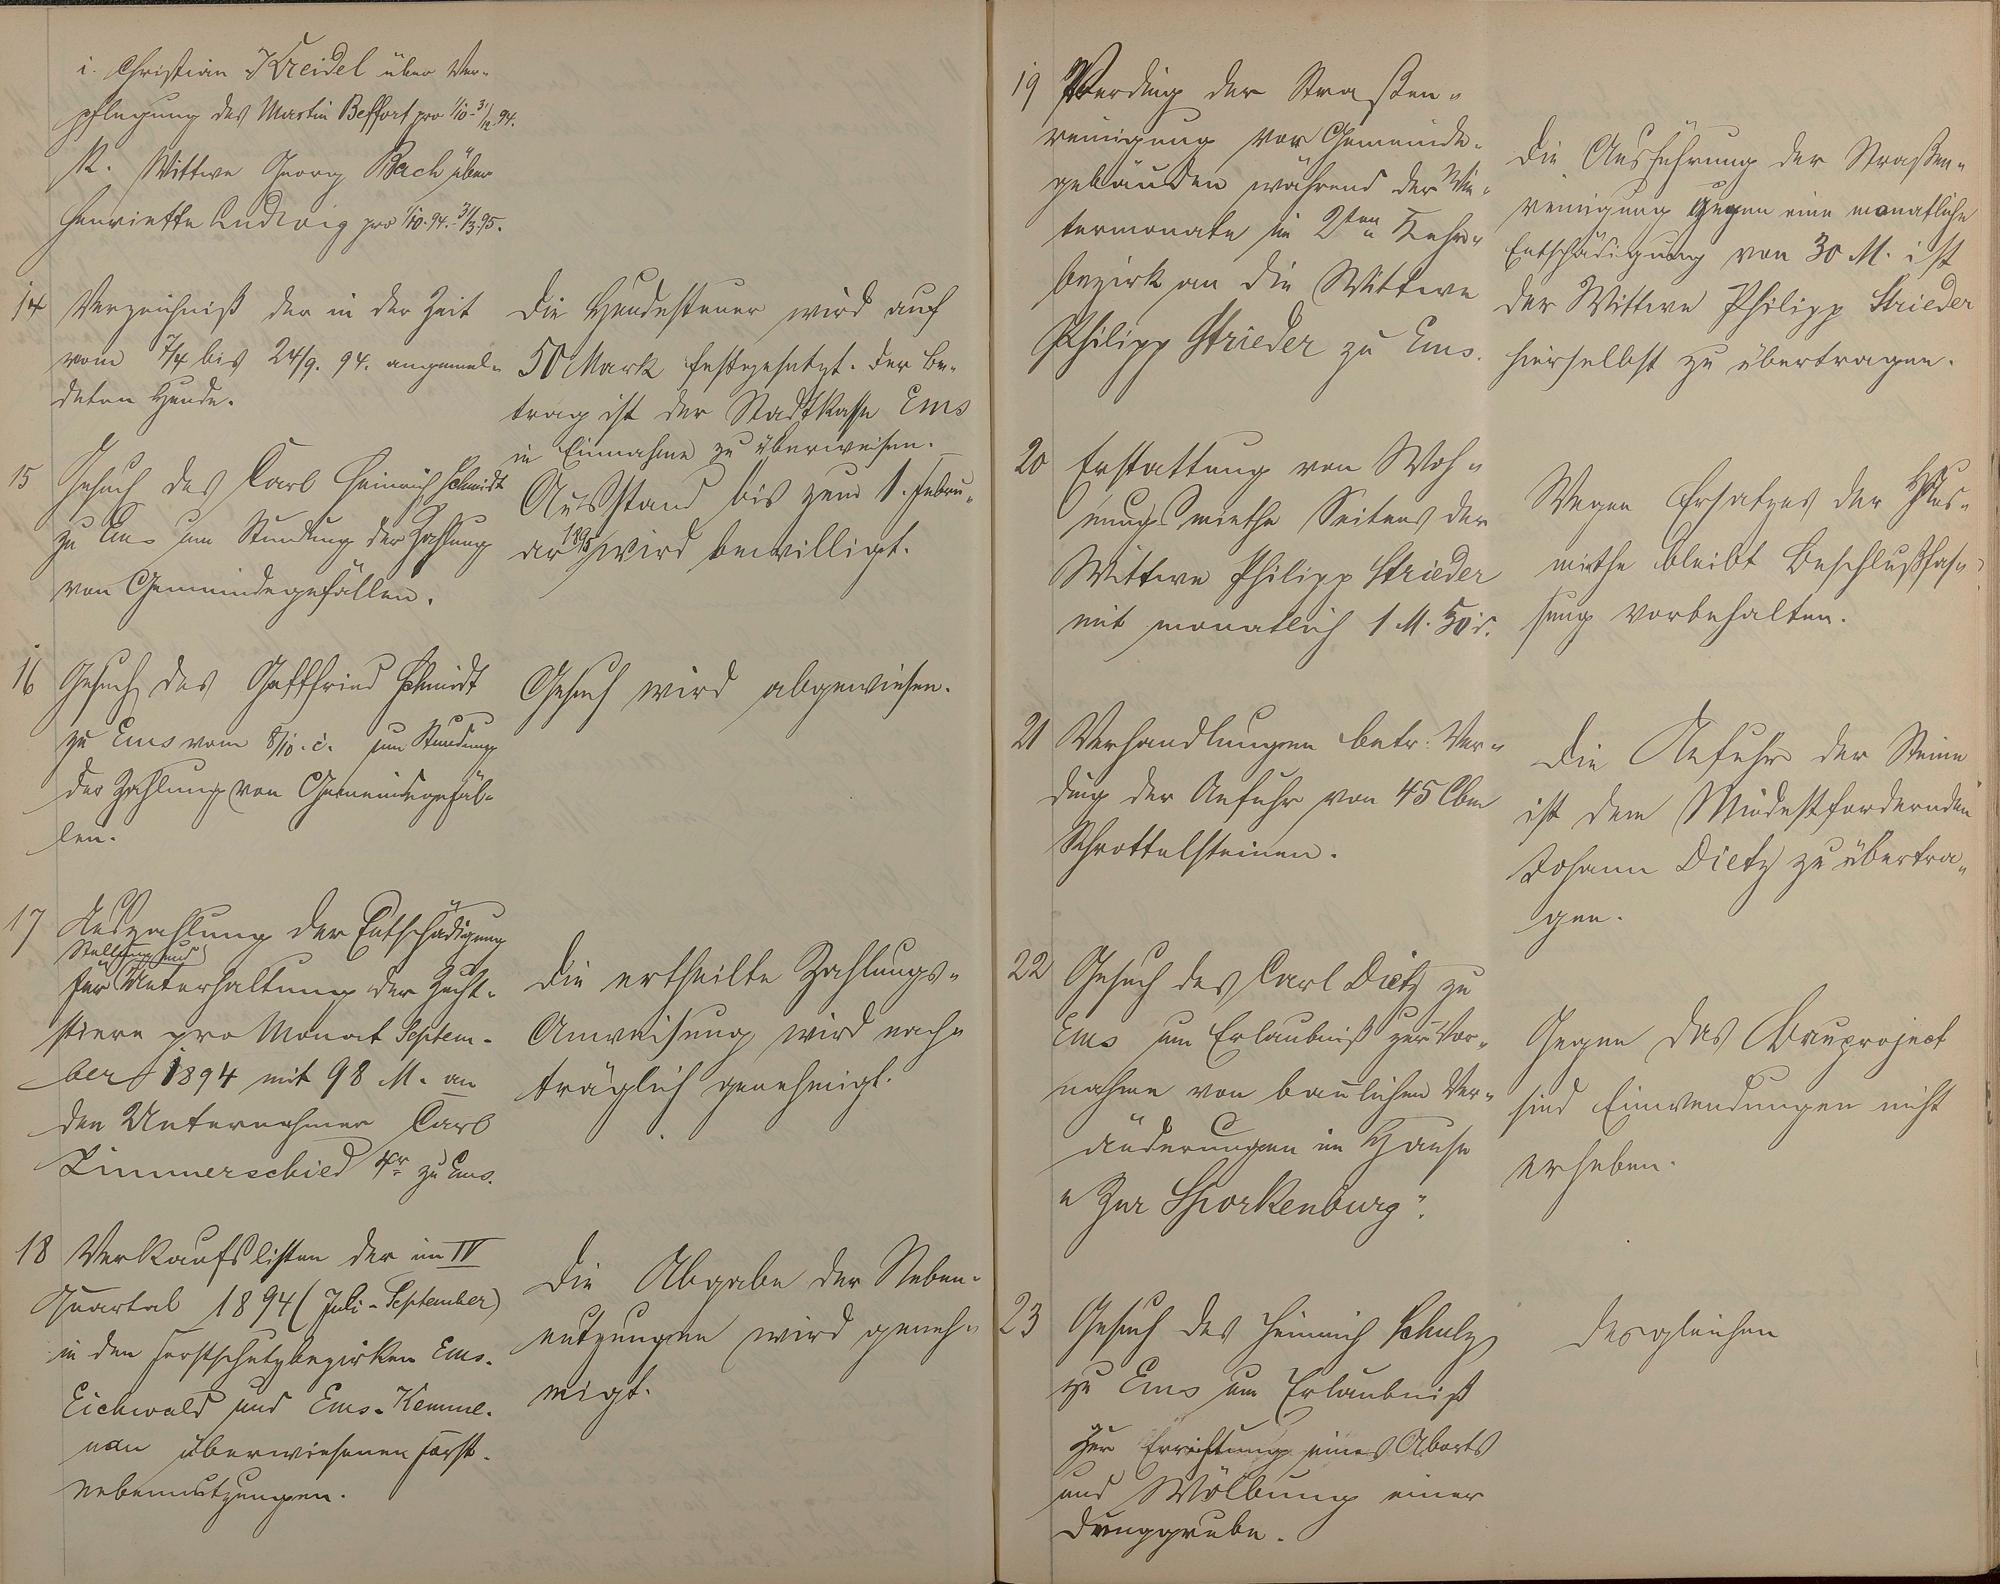 i. Christian Kreidel über Ver-
pflegung des Martin Beffort pro 1/10-31/12.94.
k. Wittwe Georg Bach über
Henriette Ludwig pro 1/10.94.-31/3.95.
14 Verzeichniß der in der Zeit
vom 7/4 bis 24/9. 94. angemel-
deten Hunde.
Die Hundesteuer wird auf
50 Mark festgesetzt. Der Be-
trag ist der Stadtkasse Ems
in Einnahme zu überweisen.
15 Gesuch des Carl Heinrich Schmidt
zu Ems um Stundung der Zahlung
von Gemeindegefällen.
Ausstand bis zum 1. Febru-
ar 1895 wird bewilligt.
16 Gesuch des Gottfried Schmidt
zu Ems vom 8/10. c. um Stundung
der Zahlung von Gemeindegefäl-
len.
Gesuch wird abgewiesen.
17 Auszahlung der Entschädigung
Stellung und
für Unterhaltung der Zucht-
stiere pro Monat Septem-
ber 1894 mit 98 M. an
den Unternehmer Carl
Zimmerschied 4r zu Ems.
Die ertheilte Zahlungs-
Anweisung wird nach-
träglich genehmigt.
18 Verkaufslisten der im IV
Quartal 1894 (Juli-September)
in den Forstschutzbezirken Ems-
Eichwald und Ems-Kemme-
nau überwiesenen Forst-
nebennutzungen.
Die Abgabe der Neben-
nutzungen wird geneh-
migt.
19 Verding der Straßen-
reinigung vor Gemeinde-
gebäuden während der Win-
termonate im 2ten Kehr-
bezirk an die Wittwe
Philipp Strieder zu Ems.
Die Ausführung der Straßen-
reinigung gegen eine monatliche
Entschädigung von 30 M. ist
der Wittwe Philipp Strieder
hierselbst zu übertragen.
20 Erstattung von Woh-
nungsmiethe Seitens der
Wittwe Philipp Strieder
mit monatlich 1 M. 50 d.
Wegen Ersatzes der Haus-
miethe bleibt Beschlußfas-
sung vorbehalten.
21 Verhandlungen betr. Ver-
ding der Anfuhr von 45 Cbm
Schrottelsteinen.
Die Anfuhr der Steine
ist dem Mindestfordernden
Johann Dietz zu übertra-
gen.
22 Gesuch des Carl Dietz zu
Ems um Erlaubniß zur Vor-
nahme von baulichen Ver-
änderungen im Hause
"Zur Sporkenburg".
Gegen das Bauproject
sind Einwendungen nicht
erheben.
23 Gesuch des Heinrich Schulz
zu Ems um Erlaubniß
zur Errichtung eines Aborts
und Wölbung einer
Dunggrube.
desgleichen